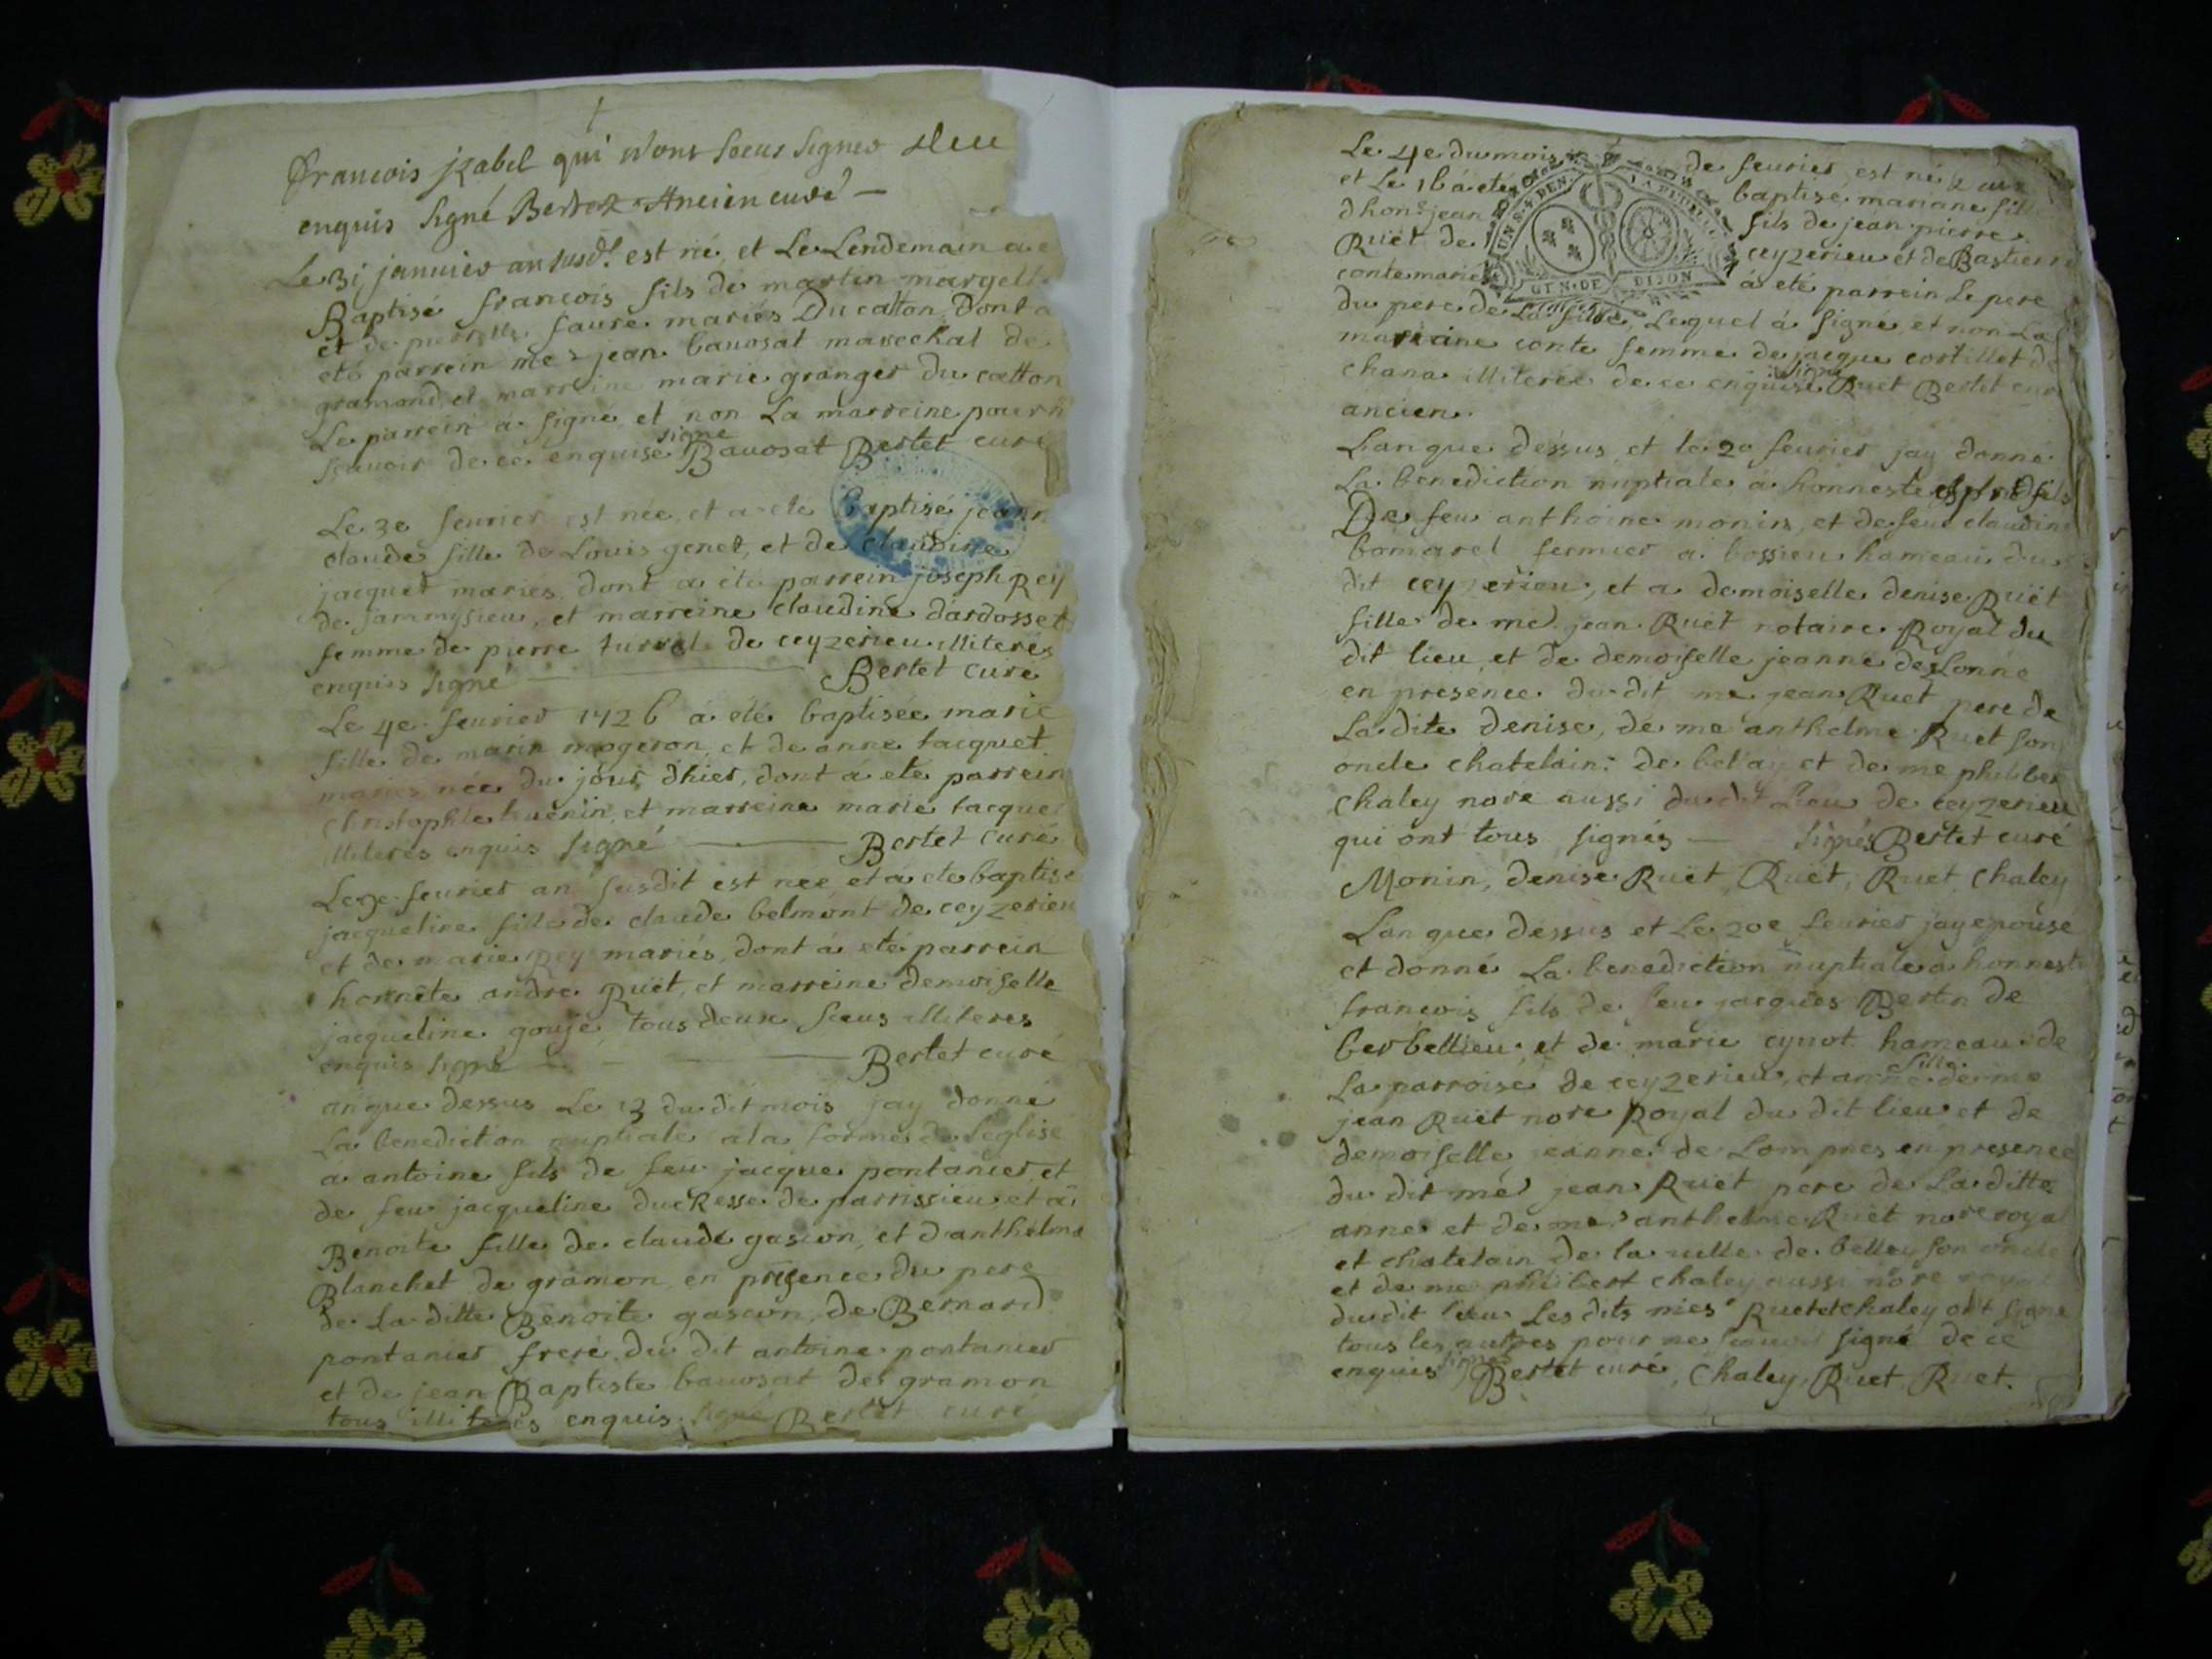 francois jzabel qui n'ont sceus signer de ce
enquis signé Bertet Ancien curé
Le 31 januier an susd.t est né, et Le Lendemain a e
Baptisé francois fils de martin margell
et de pierrette faure mariés Du catton, Dont a
eté parrein me jean bauosat marechal de
gramond, et marreine marie granger du catton
Le parrein à signé, et non La marreine pour n
scauoir de ce enquise signé Bauosat Bertet curé
Le 3e feurier est née, et a eté baptisé jeann
claude fille de Louis genet, et de claudine
jacquet mariés, dont a été parrein joseph Rey
de jammysieu, et marreine claudine dardosset
femme de pierre turrel de ceyzerieu illiterés
enquis signé Bertet curé
Le 4e feurier 1726 à eté baptisée marie
fille de marin mogeron, et de anne tacquet
mariés née du jour d'hier, dont à eté parrein
christophle teuenin, et marreine marie tacquet
illiterés enquis signé Bertet curé
Le 7e feurier an susdit est née, et a eté baptisé
jacqueline fille de claude belmont de ceyzerieu
et de marie Rey mariés, dont à eté parrein
honnête andre Ruët, et marreine demoiselle
jacqueline gouje, tous deux sceus illiteres
enquis signé Bertet curé
an que dessus Le 13 du dit mois jay donné
La benediction nuptiale a la forme de Leglise
a antoine fils de feu jacque pontanier, et
de feu jacqueline duchesse de parrissieu et à
Benoite fille de claude gascon, et danthelme
Blanchet de gramon en presence du pere
de La ditte Benoite gascon, de Bernard
pontanier frere du dit antoine pontanier
et de jean Baptiste bauosat de gramon
tous illiterés enquis signé Bertet curé
Le 4e du mois de feurier est né
et Le 16 à eté baptisé mariane fille
d'hon.e jean fils de jean pierre
Ruët de ceyzerieu et de Bastienne
conte mariés à eté parrein Le pere
UN S. 4 DEN. LA FEUILLE
GEN. DE DIJON
du pere de La fille, Lequel à signé et non La
mareine conte femme de jacque cortillet de
chana illiterée de ce enquise signé Ruet Bertet curé
ancien.
L'an que dessus et le 20 feurier jay donné
La benediction nuptiale à honneste fils
De feu anthoine monin, et de feu claudine
bomarel fermier a bossieu hameau du
dit ceyzerieu, et a demoiselle denise Ruët
fille de me jean Ruët notaire Royal du
dit lieu, et de demoiselle jeanne de Lonne
en presence du dit me jean Ruet pere de
La dite denise, de me anthelme Ruet son
oncle chatelain de bellay et de me philiber
chaley nore aussi du dit Lieu de ceyzerieu
qui ont tous signés signés Bertet curé
Monin, denise Ruët, Ruët, Ruet, chaley
Lan que dessus et Le 20e feurier jay epousé
et donné La benediction nuptiale a honneste
francois fils de feu jacques Bertin de
berbellieu et de marie cynot hameau de
La parroise de ceyzerieu, et anne fille de me
jean Ruët nore Royal du dit lieu et de
demoiselle jeanne de Lompnes en presence
du dit me jean Ruët pere de La ditte
anne et de me anthelme Ruët nore royal
et chatelain de la uille de belley son oncle
et de me philibert chaley aussi nore royal
du dit lieu Les dits mes Ruet et chaley ont signé
tous les autres pour ne scauoir signé de ce
enquis signés Bertet curé, Chaley, Ruet, Ruet.